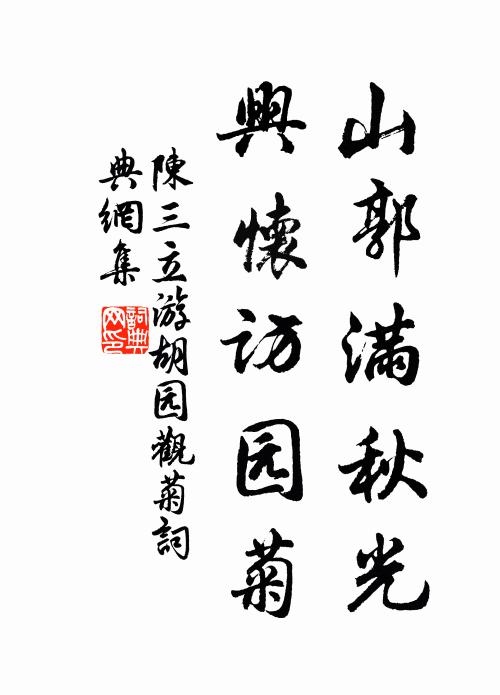 山郭滿秋光
興懷訪园菊
陳三立游胡园觀菊詞
典網集
詞典网印